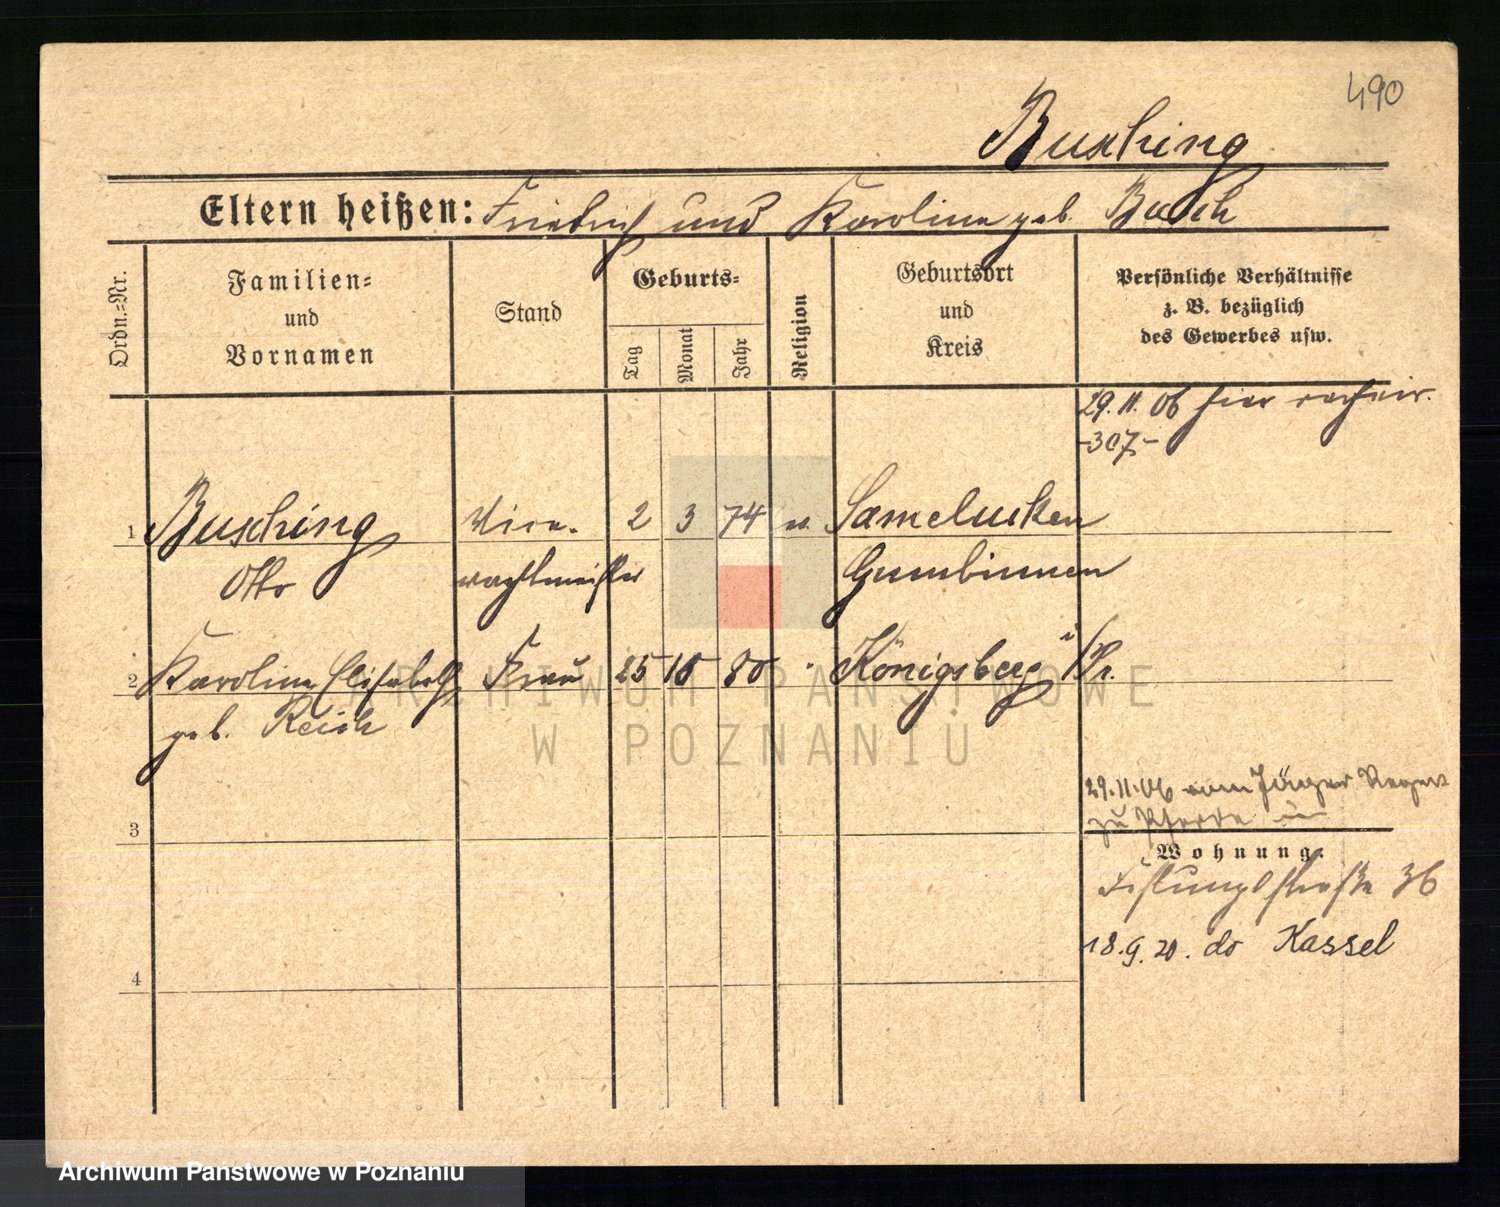 490
Busching
Eltern heißen: Friedrich und Karoline geb. Busch
Ordn.-Nr.
Familien- und Vornamen
Stand
Geburts-
Tag
Monat
Jahr
Religion
Geburtsort und Kreis
Persönliche Verhältnisse
z. B. bezüglich
des Gewerbes usw.
29. 11. 06 hier
-307-
1 Busching Vize- 2 3 74 Samelucken
Otto wachtmeister Gumbinnen
2 Karoline Elisabeth Frau 25 10 80 Königsberg i/Pr.
geb. Reich
29.11.06 vom Jäger Regmt
zu Pferde
3
Wohnung.
Festungsstraße 36
18.9.20. do Kassel
4
ARCHIWUM PAŃSTWOWE
W POZNANIU
Archiwum Państwowe w Poznaniu